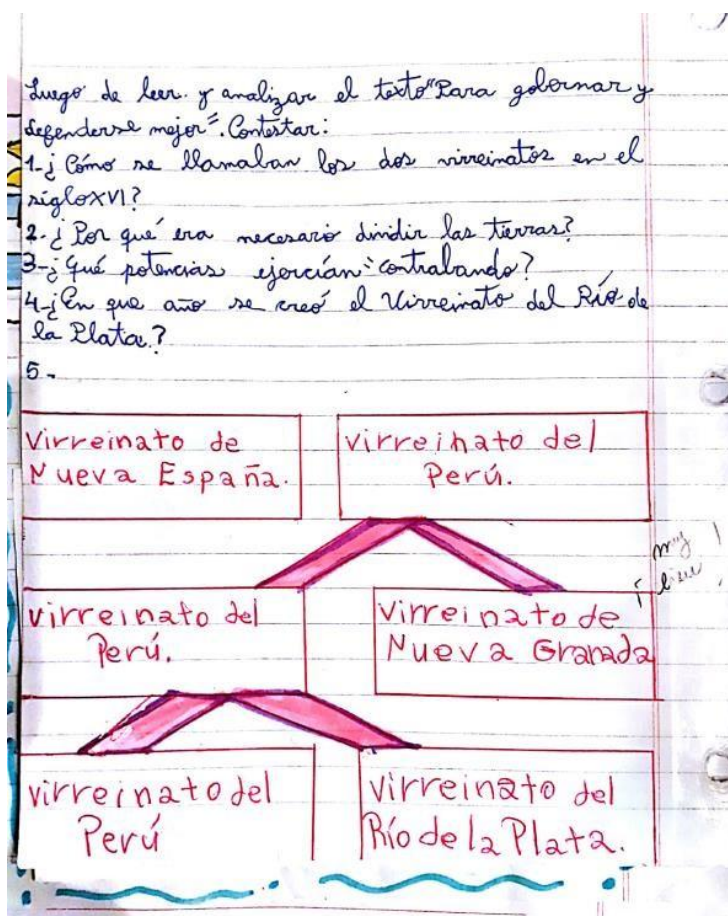 Luego de leer y analizar el texto "Para gobernar y
defenderse mejor". Contestar:
1-¿Cómo se llamaban los dos virreinatos en el
siglo XVI?
2-¿Por qué era necesario dividir las tierras?
3-¿Qué potencias ejercían "contrabando?
4-¿En que año se creó el Virreinato del Río de
la Plata?
5-
Virreinato de
Nueva España.
virreinato del
Perú.
muy
¡bien!
virreinato del
Perú.
virreinato de
Nueva Granada
virreinato del
Perú
virreinato del
Río de la Plata.